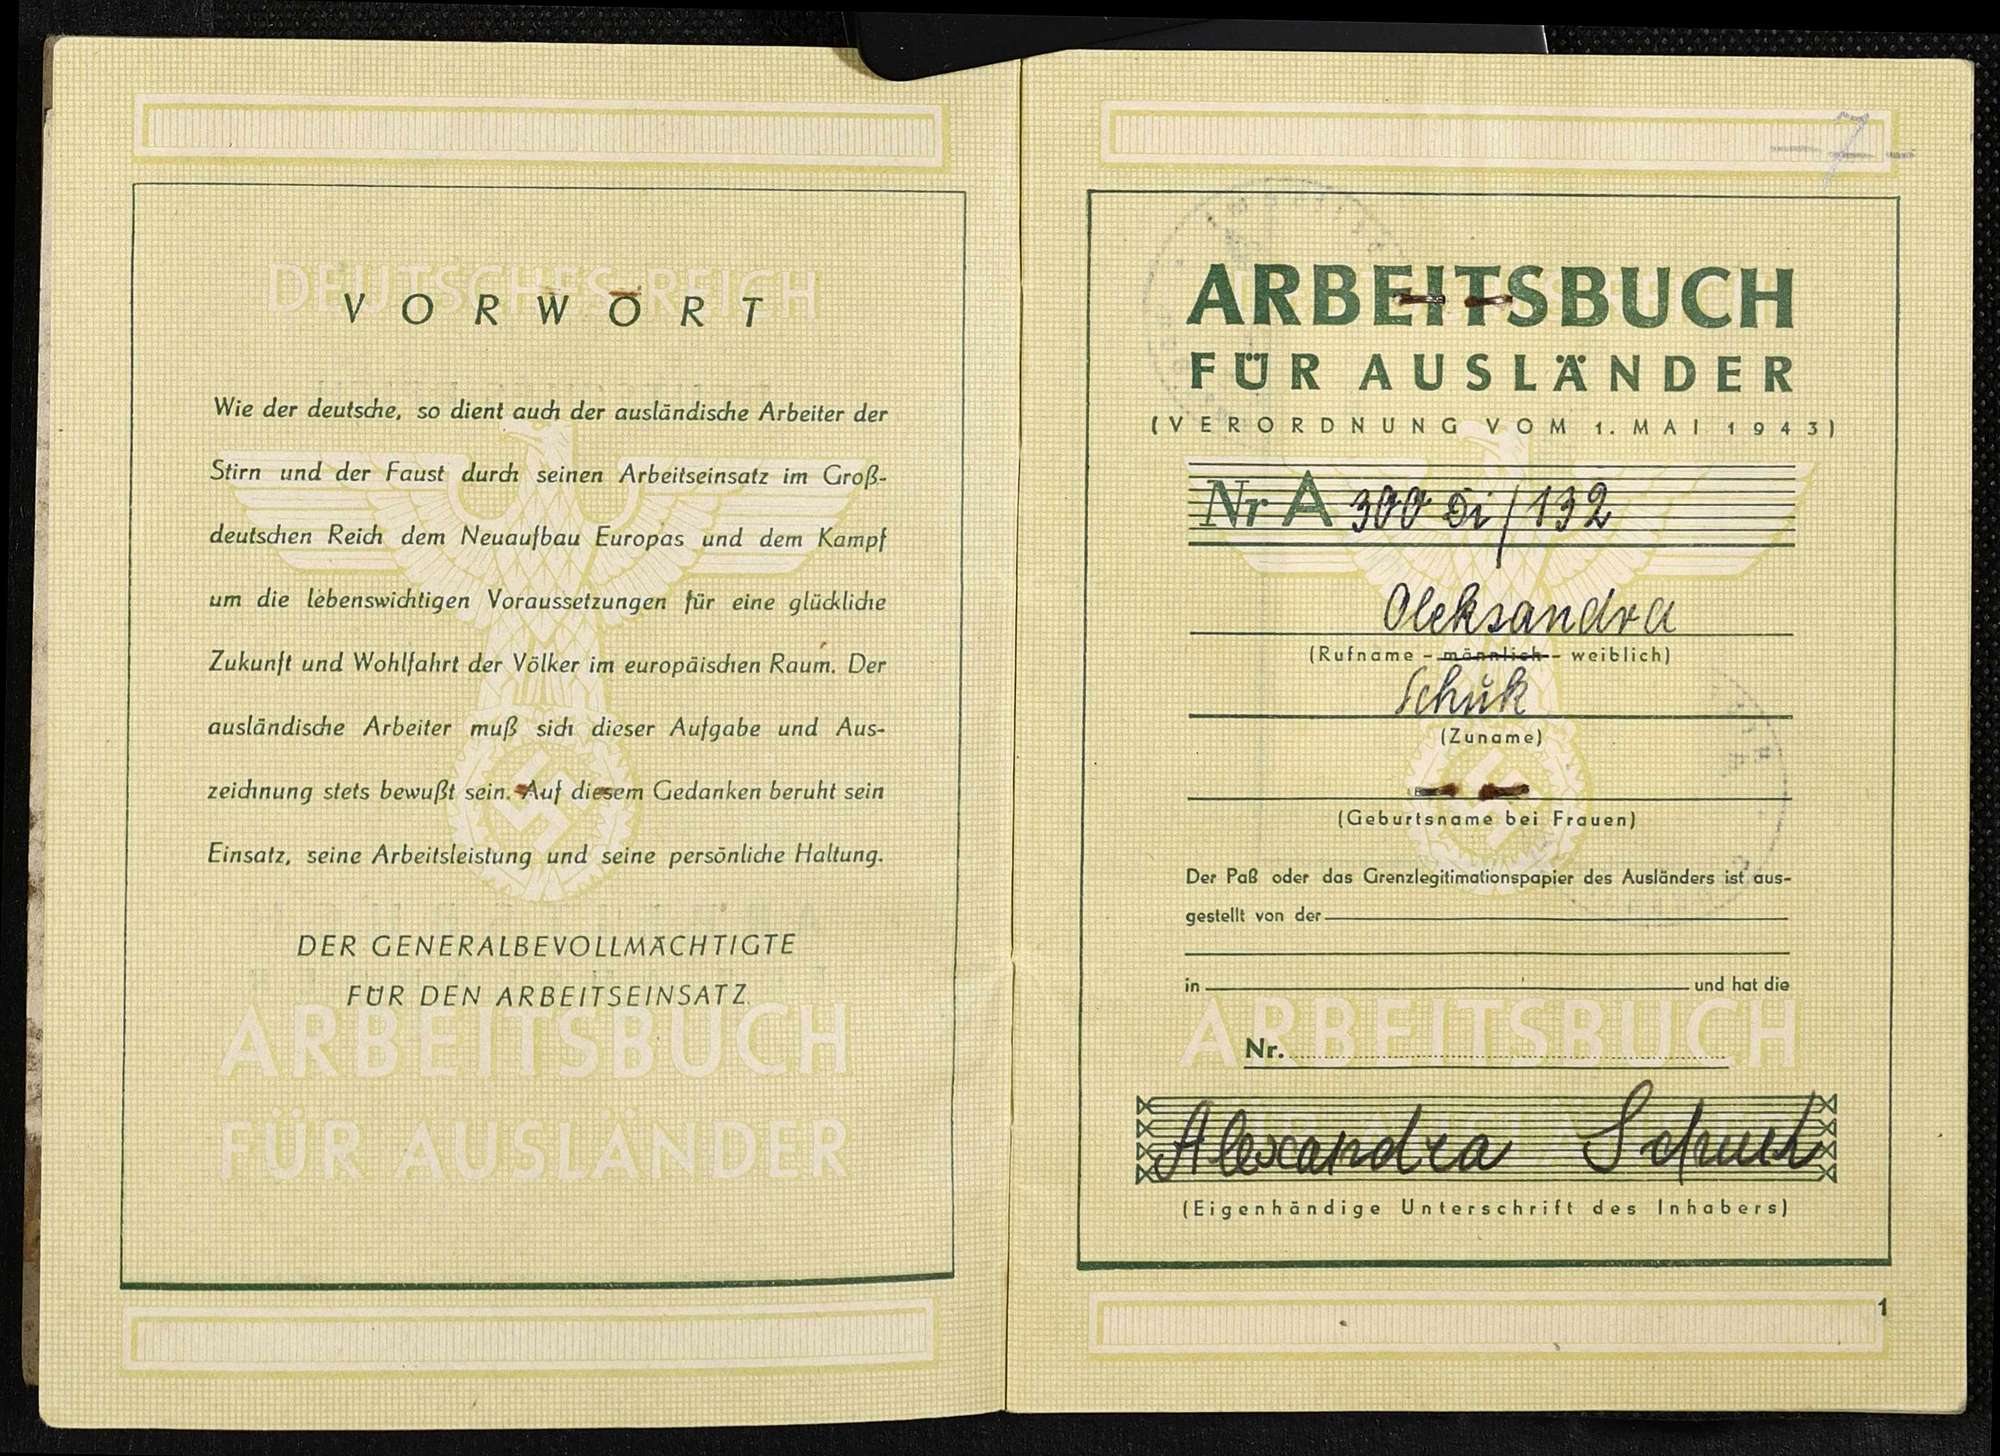 DEUTSCHES REICH
VORWORT
Wie der deutsche, so dient auch der ausländische Arbeiter der
Stirn und der Faust durch seinen Arbeitseinsatz im Groß-
deutschen Reich dem Neuaufbau Europas und dem Kampf
um die lebenswichtigen Voraussetzungen für eine glückliche
Zukunft und Wohlfahrt der Völker im europäischen Raum. Der
ausländische Arbeiter muß sich dieser Aufgabe und Aus-
zeichnung stets bewußt sein. Auf diesem Gedanken beruht sein
Einsatz, seine Arbeitsleistung und seine persönliche Haltung.
DER GENERALBEVOLLMÄCHTIGTE
FÜR DEN ARBEITSEINSATZ
ARBEITSBUCH
FÜR AUSLÄNDER
7
ARBEITSBUCH
FÜR AUSLÄNDER
(VERORDNUNG VOM 1. MAI 1943)
Nr A 300 Di/132
Oleksandra
(Rufname – männlich – weiblich)
Schuk
(Zuname)
(Geburtsname bei Frauen)
Der Paß oder das Grenzlegitimationspapier des Ausländers ist aus-
gestellt von der
in und hat die
ARBEITSBUCH
Nr.
Alexandra Schuk
(Eigenhändige Unterschrift des Inhabers)
1